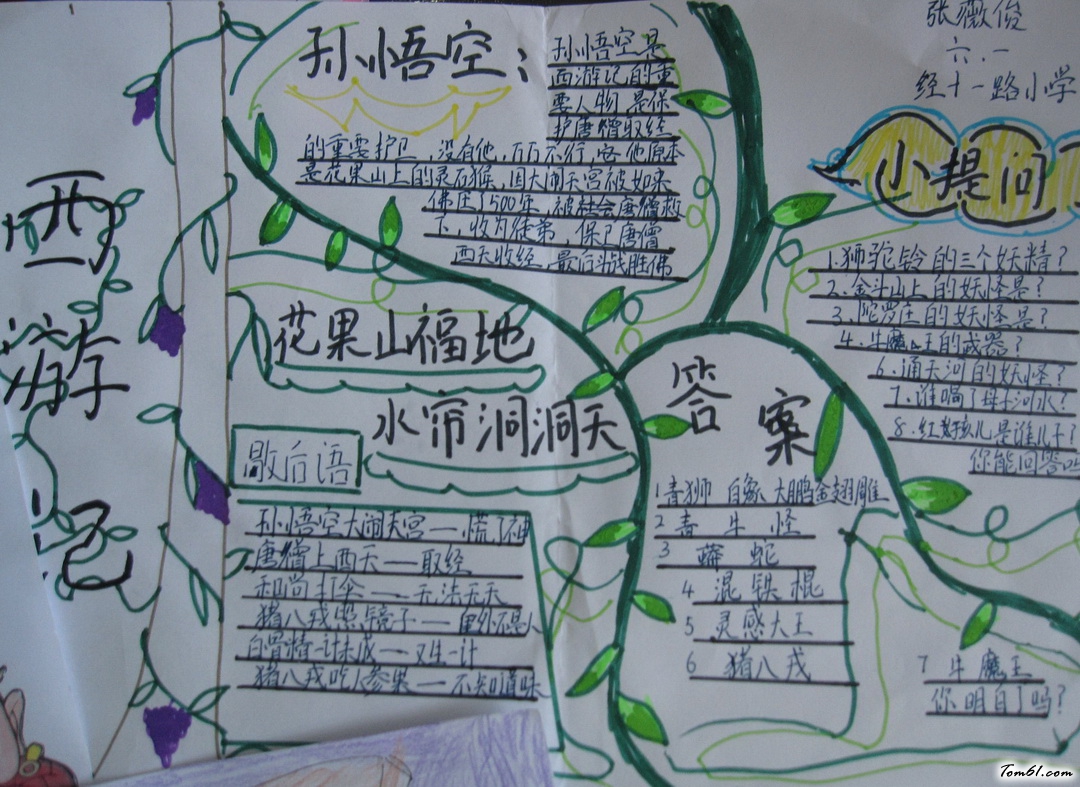 西游记
孙悟空：
孙悟空是
西游记的重
要人物，是保
护唐僧取经
的重要护卫，没有他，百万不行，
是花果山上的灵石猴，因大闹天宫被如来
佛压了500年，被社会唐僧救
下，收为徒弟，保卫唐僧
西天收经，最后斗战胜佛
花果山福地
水帘洞洞天
歇后语
孙悟空大闹天宫——慌了神
唐僧上西天——取经
和尚打伞——无法无天
猪八戒照镜子——里外不是人
白骨精一计未成——又生一计
猪八戒吃人参果——不知道味
张薇俊
六.一
经十一路小学
小提问
1.狮驼铃的三个妖精？
2.金斗山上的妖怪是？
3.陀罗庄的妖怪是？
4.牛魔王的武器？
6.通天河的妖怪？
7.谁喝了母子河水？
8.红孩儿是谁儿子？
你能回答吗
答案
1青狮 白象 大鹏金翅雕
2 青牛怪
3 蟒蛇
4 混铁棍
5 灵感大王
6 猪八戒
7 牛魔王
你明白了吗？
Tom61.com